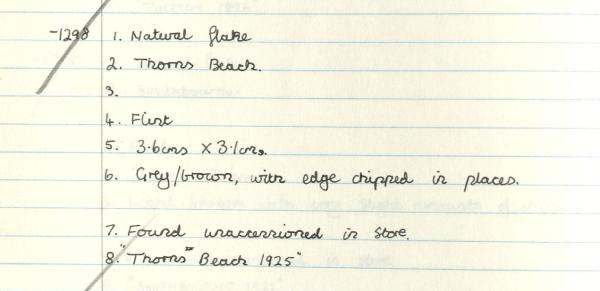 -1298 1. Natural flake
2. Thorns Beach.
3.
4. Flint
5. 3.6cms X 3.1cms.
6. Grey/brown, with edge chipped in places.
7. Found unaccessioned in store.
8. "Thorns" Beach 1925"